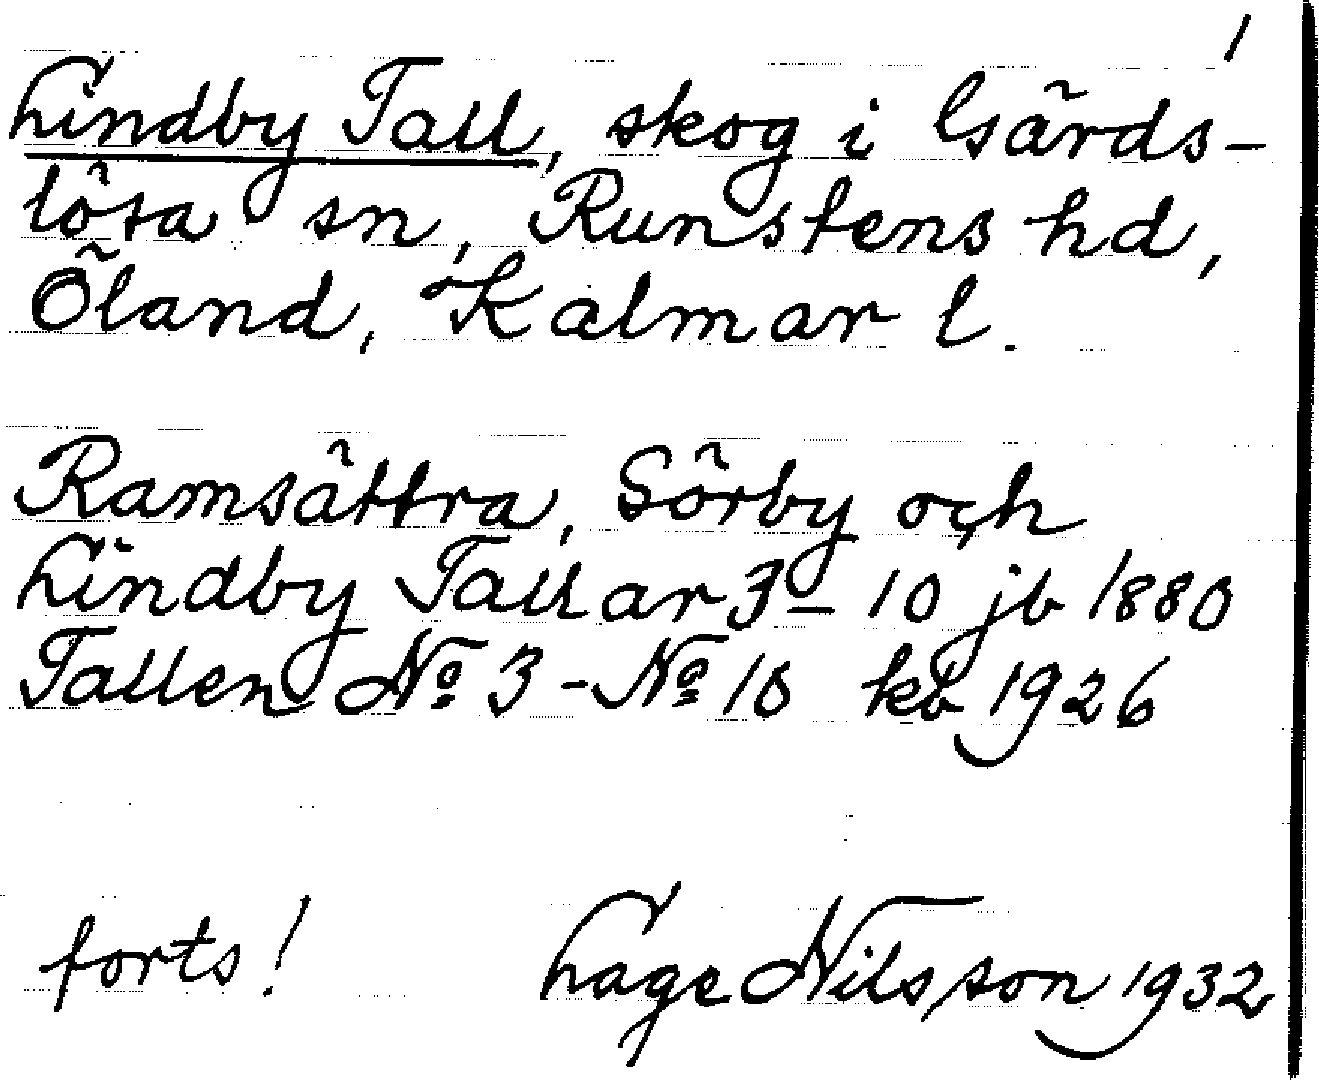 1
Lindby Tall, skog i Gärds-
lösa sn, Runstens hd,
Öland, Kalmar l.
Ramsättra, Sörby och
Lindby Tallar 3 - 10 jb 1880
Tallen No 3 - No 10 kb 1926
forts! Lage Nilsson 1932